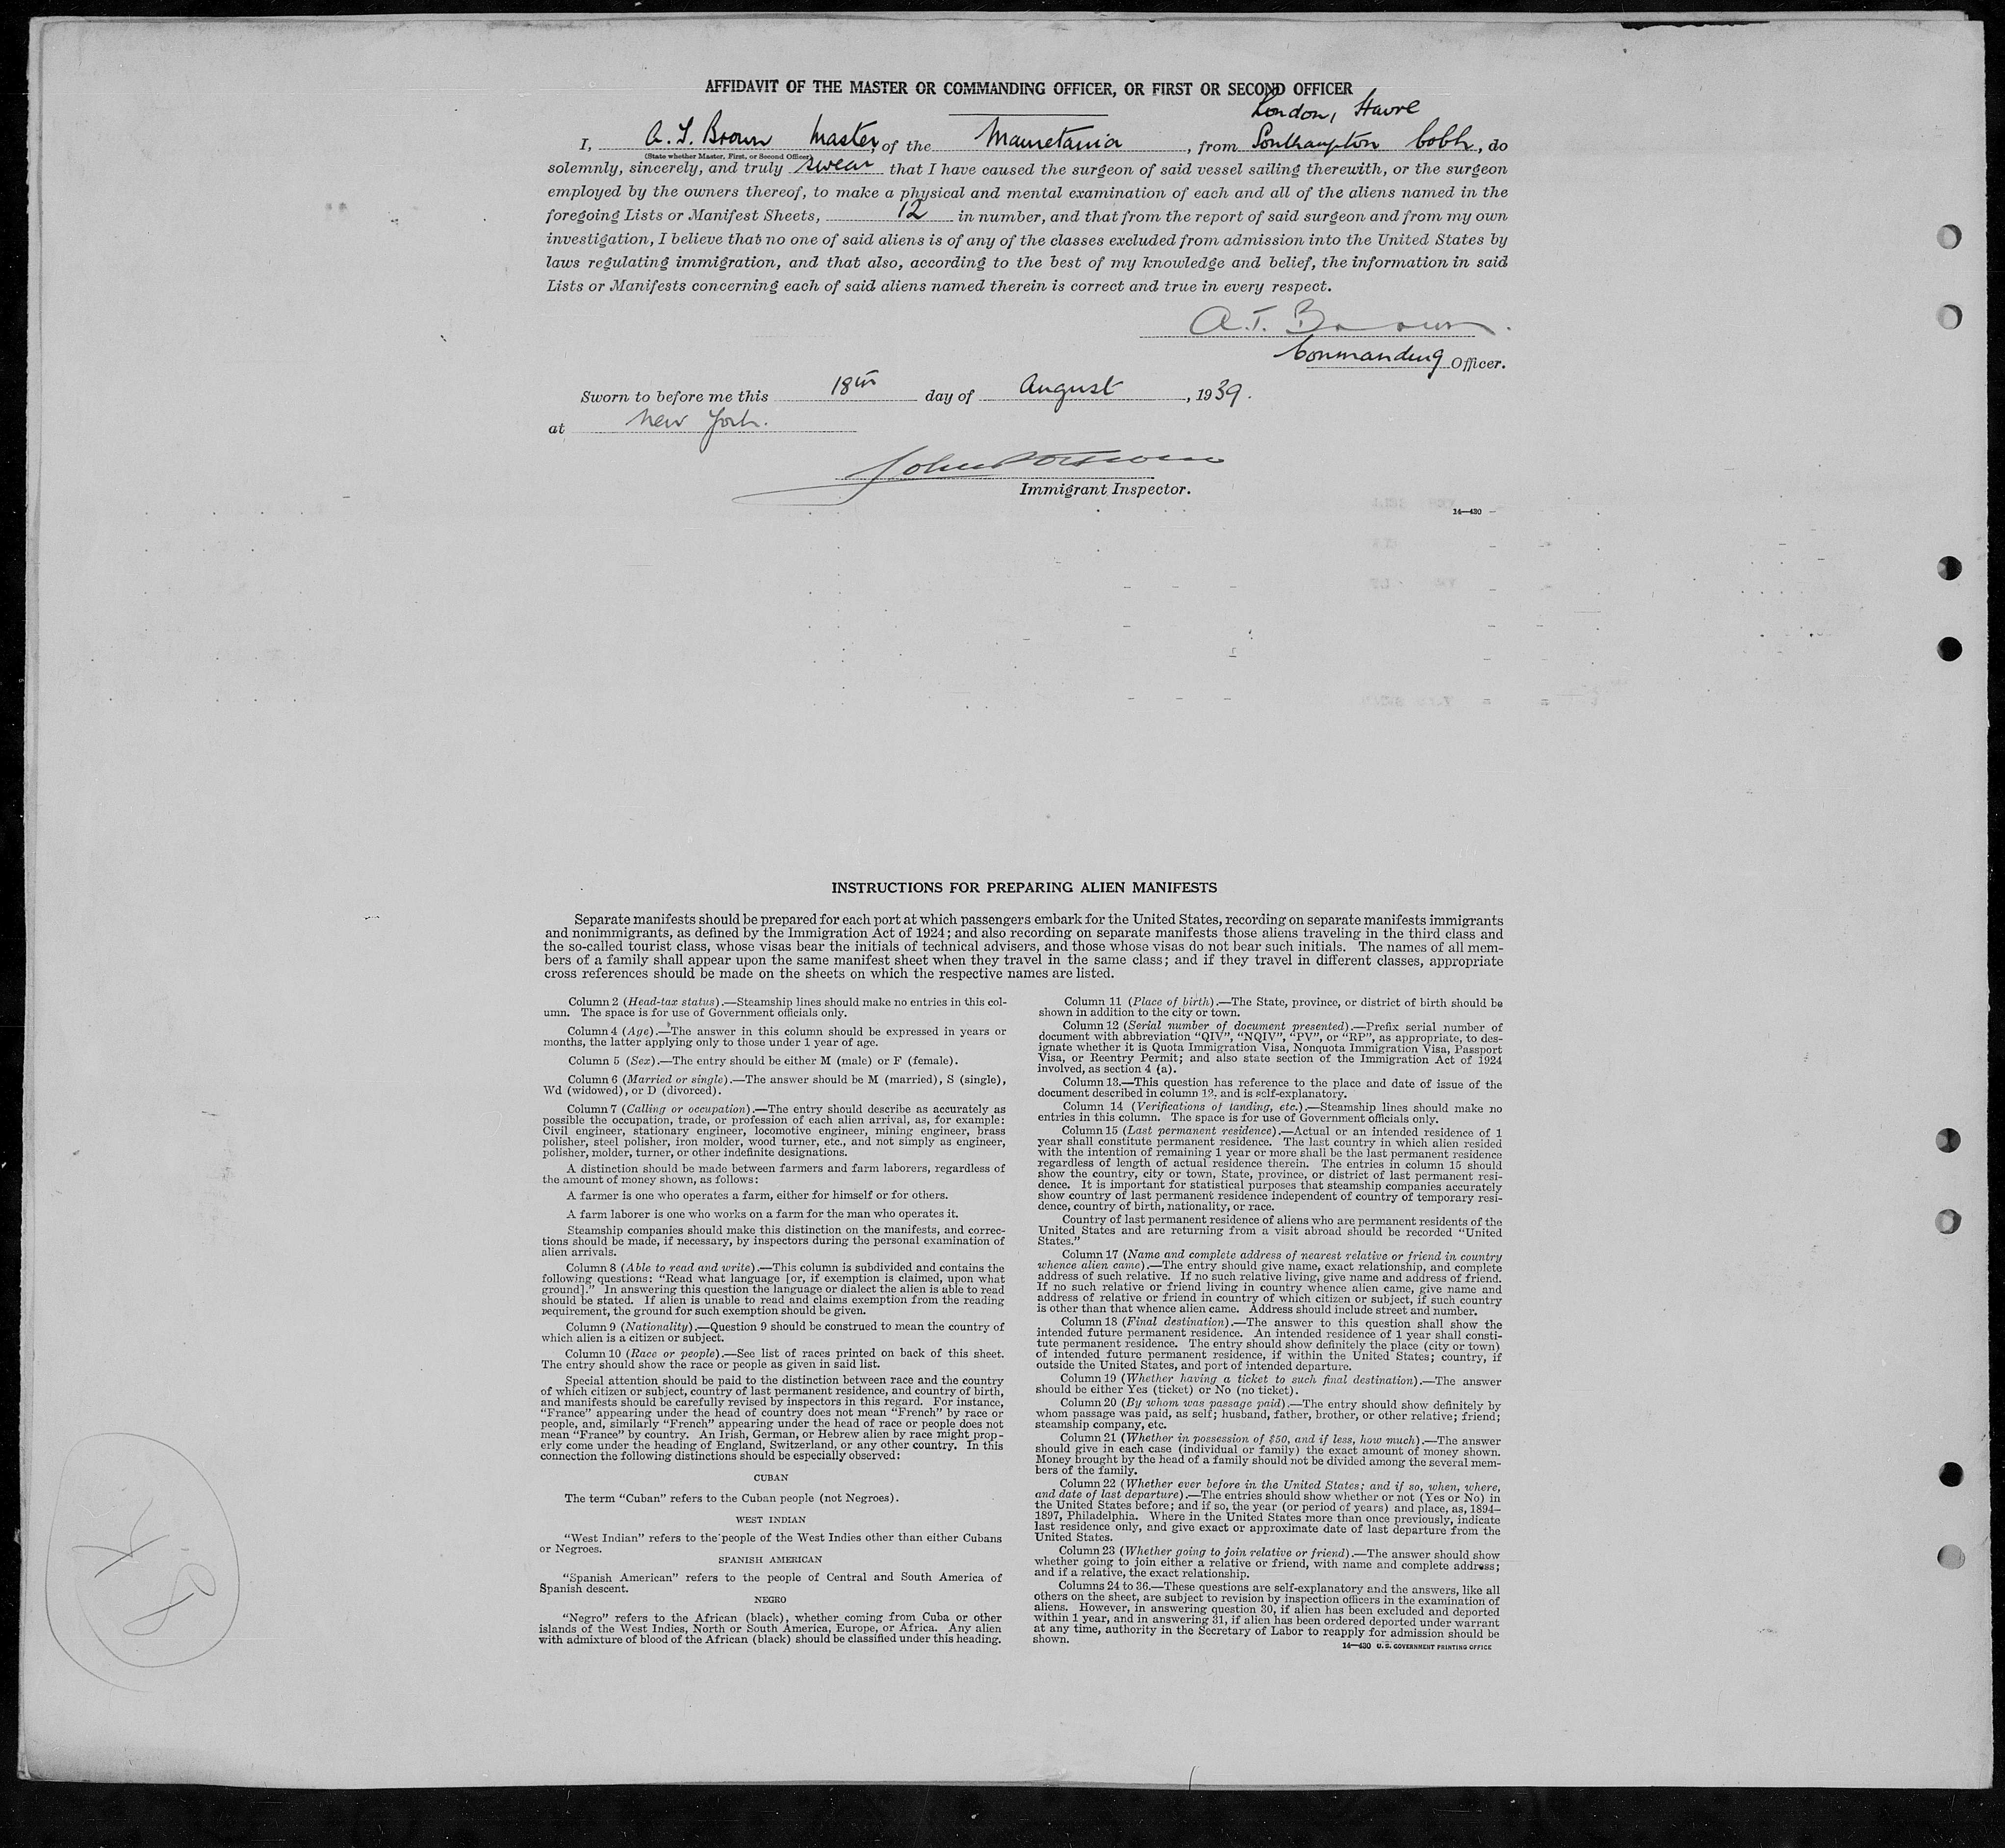 AFFIDAVIT OF THE MASTER OR COMMANDING OFFICER, OR FIRST OR SECOND OFFICER
London, Havre
I, A. T. Brown Master, of the Mauretania, from Southampton Cobh, do
(State whether Master, First, or Second Officer)
solemnly, sincerely, and truly swear that I have caused the surgeon of said vessel sailing therewith, or the surgeon
employed by the owners thereof, to make a physical and mental examination of each and all of the aliens named in the
foregoing Lists or Manifest Sheets, 12 in number, and that from the report of said surgeon and from my own
investigation, I believe that no one of said aliens is of any of the classes excluded from admission into the United States by
laws regulating immigration, and that also, according to the best of my knowledge and belief, the information in said
Lists or Manifests concerning each of said aliens named therein is correct and true in every respect.
A. T. Brown.
Commanding Officer.
Sworn to before me this 18th day of August, 1939.
at New York.
John
Immigrant Inspector.
14—430
INSTRUCTIONS FOR PREPARING ALIEN MANIFESTS
Separate manifests should be prepared for each port at which passengers embark for the United States, recording on separate manifests immigrants
and nonimmigrants, as defined by the Immigration Act of 1924; and also recording on separate manifests those aliens traveling in the third class and
the so-called tourist class, whose visas bear the initials of technical advisers, and those whose visas do not bear such initials. The names of all mem-
bers of a family shall appear upon the same manifest sheet when they travel in the same class; and if they travel in different classes, appropriate
cross references should be made on the sheets on which the respective names are listed.
Column 2 (Head-tax status).—Steamship lines should make no entries in this col-
umn. The space is for use of Government officials only.
Column 4 (Age).—The answer in this column should be expressed in years or
months, the latter applying only to those under 1 year of age.
Column 5 (Sex).—The entry should be either M (male) or F (female).
Column 6 (Married or single).—The answer should be M (married), S (single),
Wd (widowed), or D (divorced).
Column 7 (Calling or occupation).—The entry should describe as accurately as
possible the occupation, trade, or profession of each alien arrival, as, for example:
Civil engineer, stationary engineer, locomotive engineer, mining engineer, brass
polisher, steel polisher, iron molder, wood turner, etc., and not simply as engineer,
polisher, molder, turner, or other indefinite designations.
A distinction should be made between farmers and farm laborers, regardless of
the amount of money shown, as follows:
A farmer is one who operates a farm, either for himself or for others.
A farm laborer is one who works on a farm for the man who operates it.
Steamship companies should make this distinction on the manifests, and correc-
tions should be made, if necessary, by inspectors during the personal examination of
alien arrivals.
Column 8 (Able to read and write).—This column is subdivided and contains the
following questions: “Read what language [or, if exemption is claimed, upon what
ground].” In answering this question the language or dialect the alien is able to read
should be stated. If alien is unable to read and claims exemption from the reading
requirement, the ground for such exemption should be given.
Column 9 (Nationality).—Question 9 should be construed to mean the country of
which alien is a citizen or subject.
Column 10 (Race or people).—See list of races printed on back of this sheet.
The entry should show the race or people as given in said list.
Special attention should be paid to the distinction between race and the country
of which citizen or subject, country of last permanent residence, and country of birth,
and manifests should be carefully revised by inspectors in this regard. For instance,
“France” appearing under the head of country does not mean “French” by race or
people, and, similarly “French” appearing under the head of race or people does not
mean “France” by country. An Irish, German, or Hebrew alien by race might prop-
erly come under the heading of England, Switzerland, or any other country. In this
connection the following distinctions should be especially observed:
CUBAN
The term “Cuban” refers to the Cuban people (not Negroes).
WEST INDIAN
“West Indian” refers to the people of the West Indies other than either Cubans
or Negroes.
SPANISH AMERICAN
“Spanish American” refers to the people of Central and South America of
Spanish descent.
NEGRO
“Negro” refers to the African (black), whether coming from Cuba or other
islands of the West Indies, North or South America, Europe, or Africa. Any alien
with admixture of blood of the African (black) should be classified under this heading.
Column 11 (Place of birth).—The State, province, or district of birth should be
shown in addition to the city or town.
Column 12 (Serial number of document presented).—Prefix serial number of
document with abbreviation “QIV”, “NQIV”, “PV”, or “RP”, as appropriate, to des-
ignate whether it is Quota Immigration Visa, Nonquota Immigration Visa, Passport
Visa, or Reentry Permit; and also state section of the Immigration Act of 1924
involved, as section 4 (a).
Column 13.—This question has reference to the place and date of issue of the
document described in column 12, and is self-explanatory.
Column 14 (Verifications of landing, etc.).—Steamship lines should make no
entries in this column. The space is for use of Government officials only.
Column 15 (Last permanent residence).—Actual or an intended residence of 1
year shall constitute permanent residence. The last country in which alien resided
with the intention of remaining 1 year or more shall be the last permanent residence
regardless of length of actual residence therein. The entries in column 15 should
show the country, city or town, State, province, or district of last permanent resi-
dence. It is important for statistical purposes that steamship companies accurately
show country of last permanent residence independent of country of temporary resi-
dence, country of birth, nationality, or race.
Country of last permanent residence of aliens who are permanent residents of the
United States and are returning from a visit abroad should be recorded “United
States.”
Column 17 (Name and complete address of nearest relative or friend in country
whence alien came).—The entry should give name, exact relationship, and complete
address of such relative. If no such relative living, give name and address of friend.
If no such relative or friend living in country whence alien came, give name and
address of relative or friend in country of which citizen or subject, if such country
is other than that whence alien came. Address should include street and number.
Column 18 (Final destination).—The answer to this question shall show the
intended future permanent residence. An intended residence of 1 year shall consti-
tute permanent residence. The entry should show definitely the place (city or town)
of intended future permanent residence, if within the United States; country, if
outside the United States, and port of intended departure.
Column 19 (Whether having a ticket to such final destination).—The answer
should be either Yes (ticket) or No (no ticket).
Column 20 (By whom was passage paid).—The entry should show definitely by
whom passage was paid, as self; husband, father, brother, or other relative; friend;
steamship company, etc.
Column 21 (Whether in possession of $50, and if less, how much).—The answer
should give in each case (individual or family) the exact amount of money shown.
Money brought by the head of a family should not be divided among the several mem-
bers of the family.
Column 22 (Whether ever before in the United States; and if so, when, where,
and date of last departure).—The entries should show whether or not (Yes or No) in
the United States before; and if so, the year (or period of years) and place, as, 1894–
1897, Philadelphia. Where in the United States more than once previously, indicate
last residence only, and give exact or approximate date of last departure from the
United States.
Column 23 (Whether going to join relative or friend).—The answer should show
whether going to join either a relative or friend, with name and complete address;
and if a relative, the exact relationship.
Columns 24 to 36.—These questions are self-explanatory and the answers, like all
others on the sheet, are subject to revision by inspection officers in the examination of
aliens. However, in answering question 30, if alien has been excluded and deported
within 1 year, and in answering 31, if alien has been ordered deported under warrant
at any time, authority in the Secretary of Labor to reapply for admission should be
shown.
14—430 U.S. GOVERNMENT PRINTING OFFICE